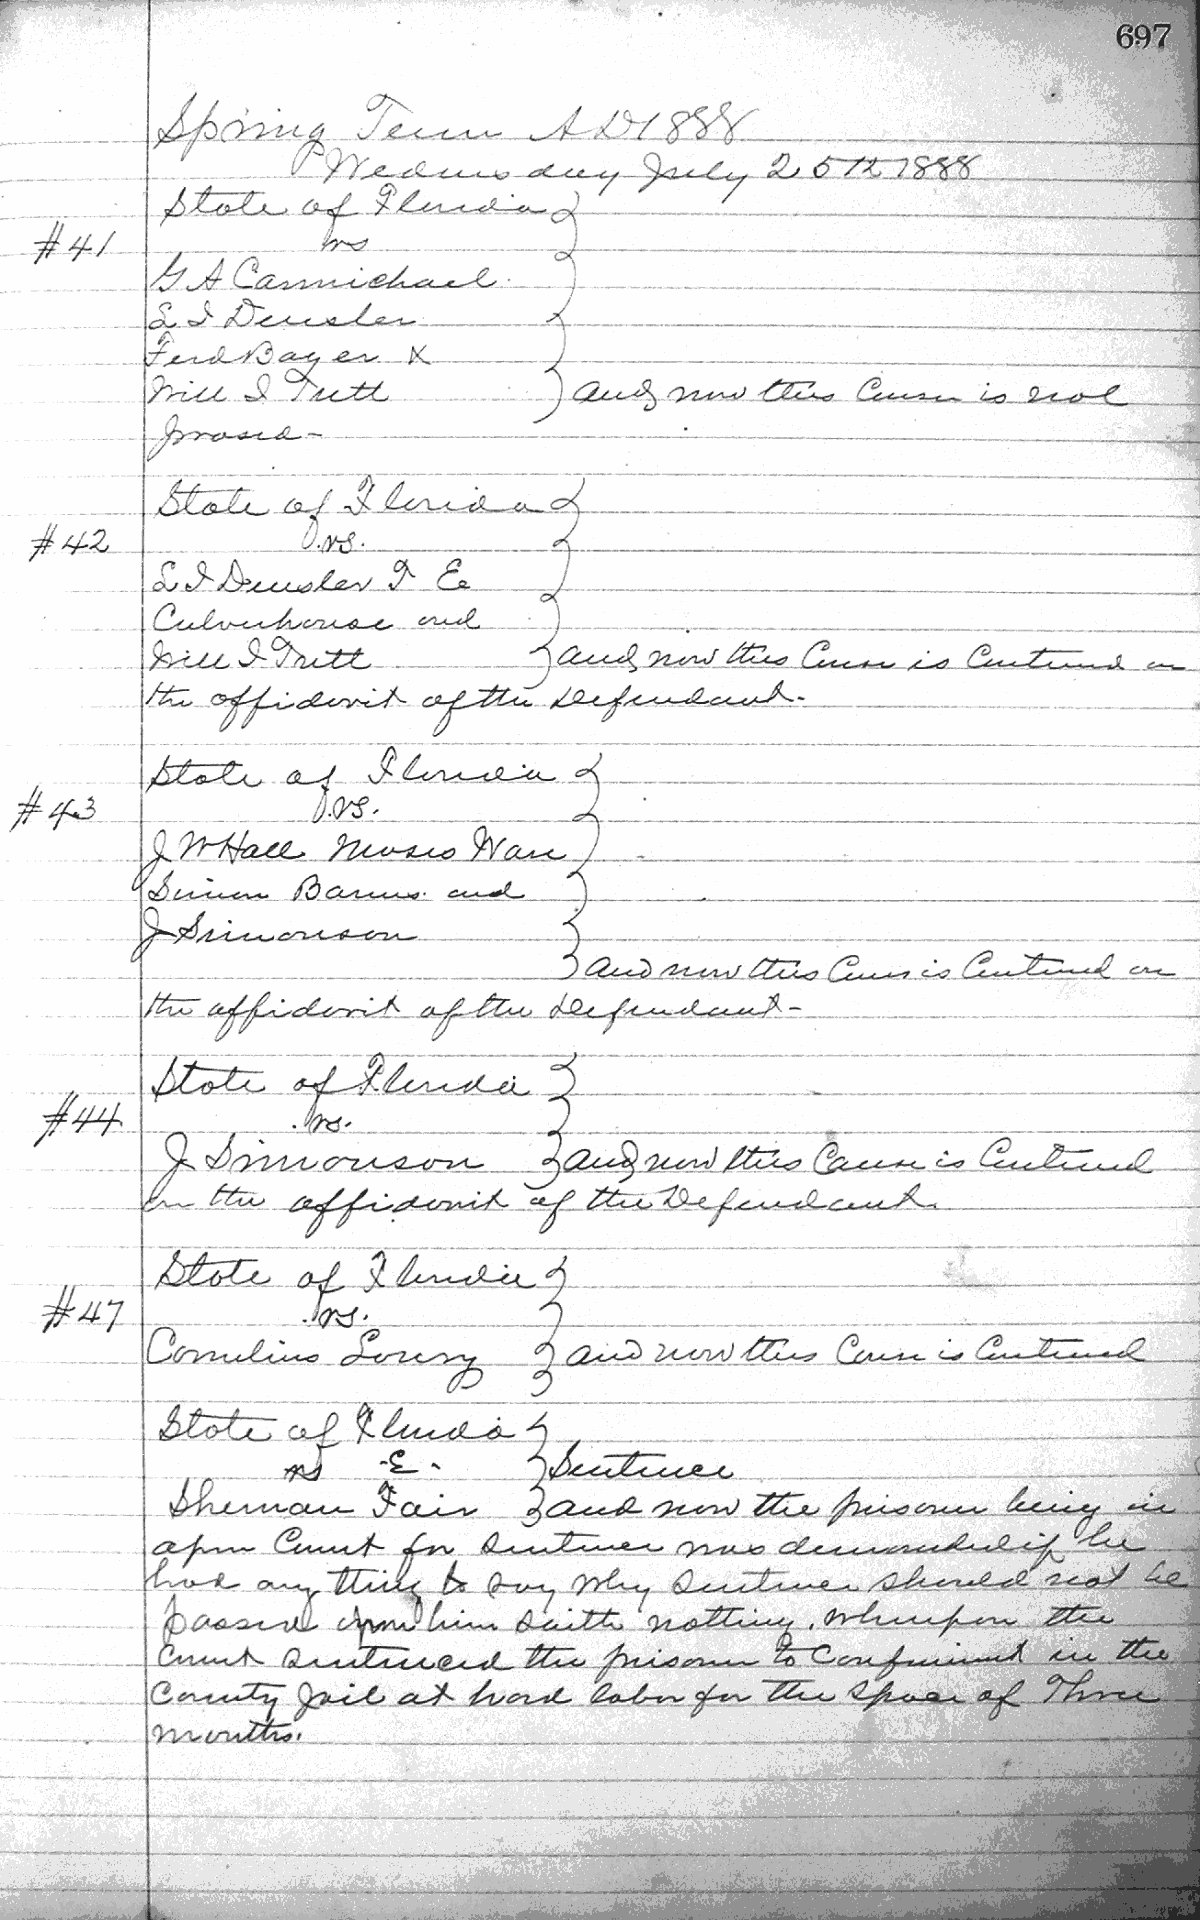 697
Spring Term A D 1888
Wednesday July 25th 1888
State of Florida
#41
vs
G A Carmichael
L I Densler
Ferd Bayer &
Will I Tutt and now this Cause is nol
prosed-
State of Florida
#42
vs.
L I Densler F E
Culverhouse and
Will I Tutt and now this Cause is Continued on
the affidavit of the Defendant.
State of Florida
#43
vs.
J W Hall Moses Ware
Simon Barnes and
J Simonson
and now this Cause is Continued on
the affidavit of the Defendant-
State of Florida
#44
vs.
J Simonson and now this Cause is Continued
on the affidavit of the Defendant.
State of Florida
#47
vs.
Cornelius Lowry and now this Cause is Continued
State of Florida
vs -E- Sentence
Sherman Fair and now the prisoner being in
open Court for Sentence was demanded if he
had any thing to say why Sentence should not be
passed upon him saith nothing. Whereupon the
Court Sentenced the prisoner to Confinement in the
County Jail at hard labor for the space of Three
months.